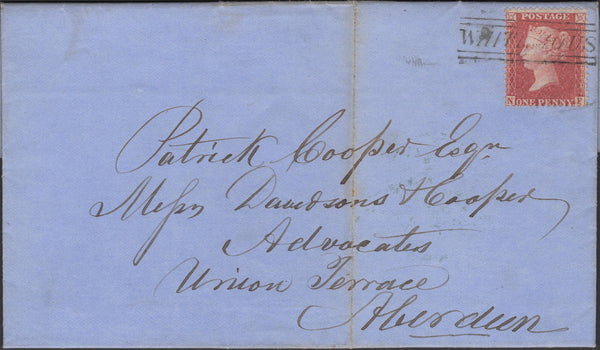 POSTAGE
WHITEHILLS
N ONE PENNY F
Patrick Cooper Esqr
Messrs Davidsons & Cooper
Advocates
Union Terrace
Aberdeen